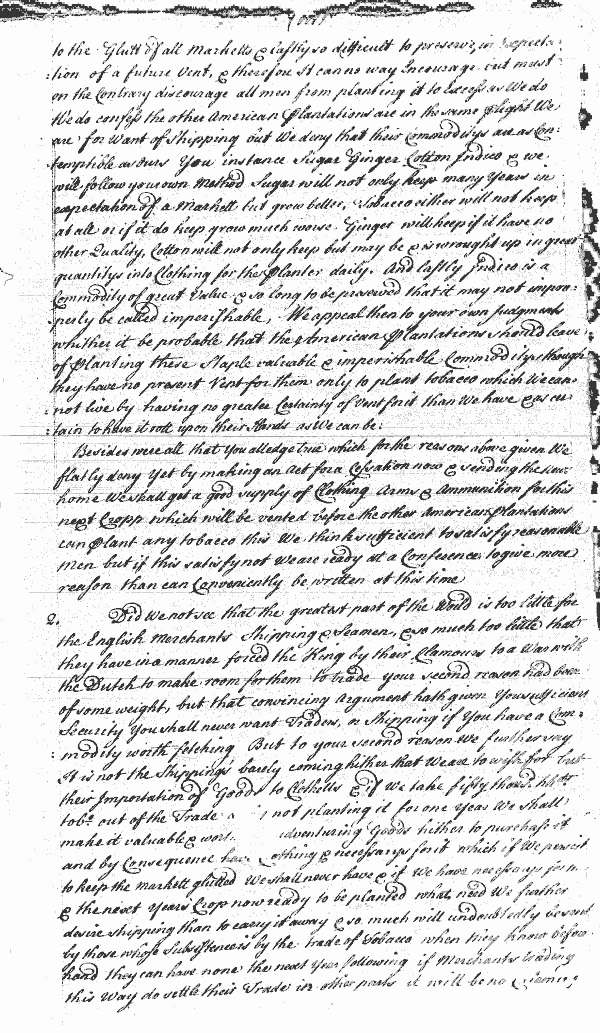 to the Glutt of all Marketts & lastly so difficult to preserve in expecta-
:tion of a future Vent, & therefore It can no way Encourage but must
on the Contrary discourage all men from planting it to Excess as We do
We do confess the other American Plantations are in the same plight We
are for Want of Shipping but We deny that their Commoditys are as Con-
temptible as ours You instance Sugar Ginger Cotton Indico & we
will follow your own Method Sugar will not only keep many Years in
expectation of a Markett but grow better, Tobacco either will not keep
at all or if it do keep grow much worse Ginger will keep if it have no
other Quality, Cotton will not only keep but may be & is wrought up in great
quantitys into Clothing for the Planter daily. And lastly Indico is a
Commodity of great Value & so long to be preserved that it may not impro-
:perly be called imperishable, We appeal then to your own Judgments
whither it be probable that the American Plantations should leave
of Planting these Staple valuable & imperishable Commoditys though
they have no present Vent for them only to plant tobacco which We can-
:not live by having no greater Certainty of Vent for it than We have & as cer-
:tain to have it rott upon their Hands as We can be:
Besides were all that You alledge true which for the reasons above given We
flatly deny Yet by making an Act for a Cessation now & sending the News
home We shall get a good supply of Clothing Arms & Ammunition for this
next Cropp which will be vented before the other American Plantations
can Plant any tobacco this We think sufficient to satisfy reasonable
men but if this satisfy not We are ready at a Conference to give more
reason than can Conveniently be written at this time
2. Did We not see that the greatest part of the World is too little for
the English Merchants Shipping & Seamen, & so much too little that
they have in a manner forced the King by their Clamours to a War with
the Dutch to make room for them to trade your second reason had been
of some weight, but that convincing Argument hath given You sufficient
Security You shall never want Traders, or Shipping if You have a Com-
:modity worth fetching But to your second reason We further say
It is not the Shipping's barely coming hither that We are to wish for but
their Importation of Goods to Cloth Us & if We take fifty thous. hhds
tobo. out of the Trade not planting it for one Year We shall
make it valuable & wort adventuring Goods hither to purchase it
and by Consequence have Clothing & necessarys for it which if We persist
to keep the Markett glutted We shall never have & if We have necessarys for
& the next Years Crop now ready to be planted what need We further
desire shipping than to carry it away & so much will undoubtedly be sent
by those whose Subsistence is by the trade of Tobacco when they know before-
hand they can have none the next Year following if Merchants trading
this Way do settle their Trade in other parts it will be no